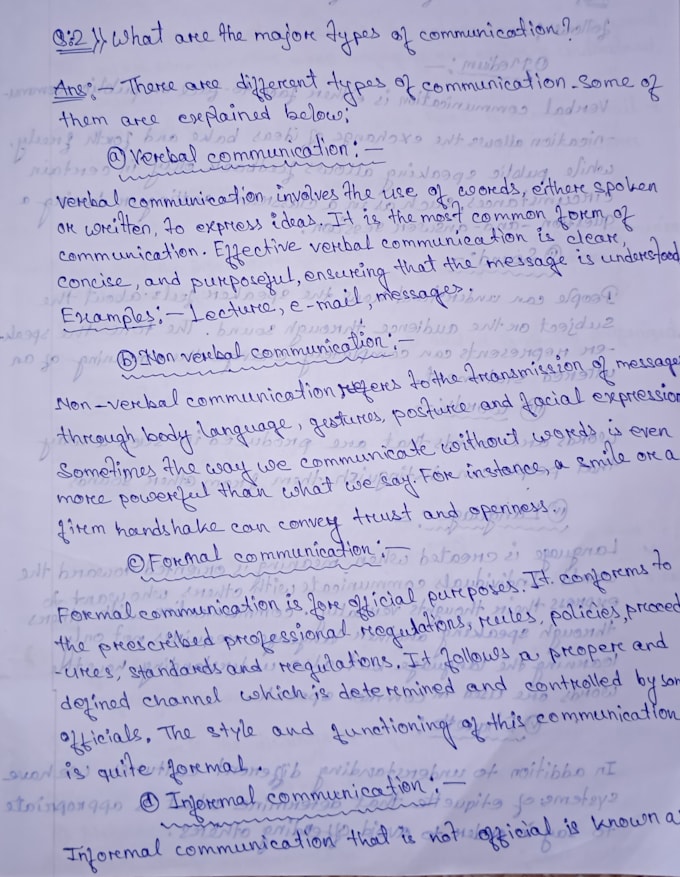 Q:2 ⟩⟩ What are the major types of communication?
Ans:- There are different types of communication. Some of
them are explained below:
ⓐ Verbal communication:-
Verbal communication involves the use of words, either spoken
or written, to express ideas. It is the most common form of
communication. Effective verbal communication is clear,
concise, and purposeful, ensuring that the message is understood
Examples:- Lecture, e-mail, messages.
ⓑ Non verbal communication:-
Non-verbal communication refers to the transmission of messages
through body language, gestures, posture and facial expression
Sometimes the way we communicate without words, is even
more powerful than what we say. For instance, a smile or a
firm handshake can convey trust and openness.
ⓒ Formal communication:-
Formal communication is for official purposes. It conforms to
the prescribed professional regulations, rules, policies, proced
-ures, standards and regulations. It follows a proper and
defined channel which is determined and controlled by som
officials. The style and functioning of this communication
is quite formal.
ⓓ Informal communication:-
Informal communication that is not official is known a